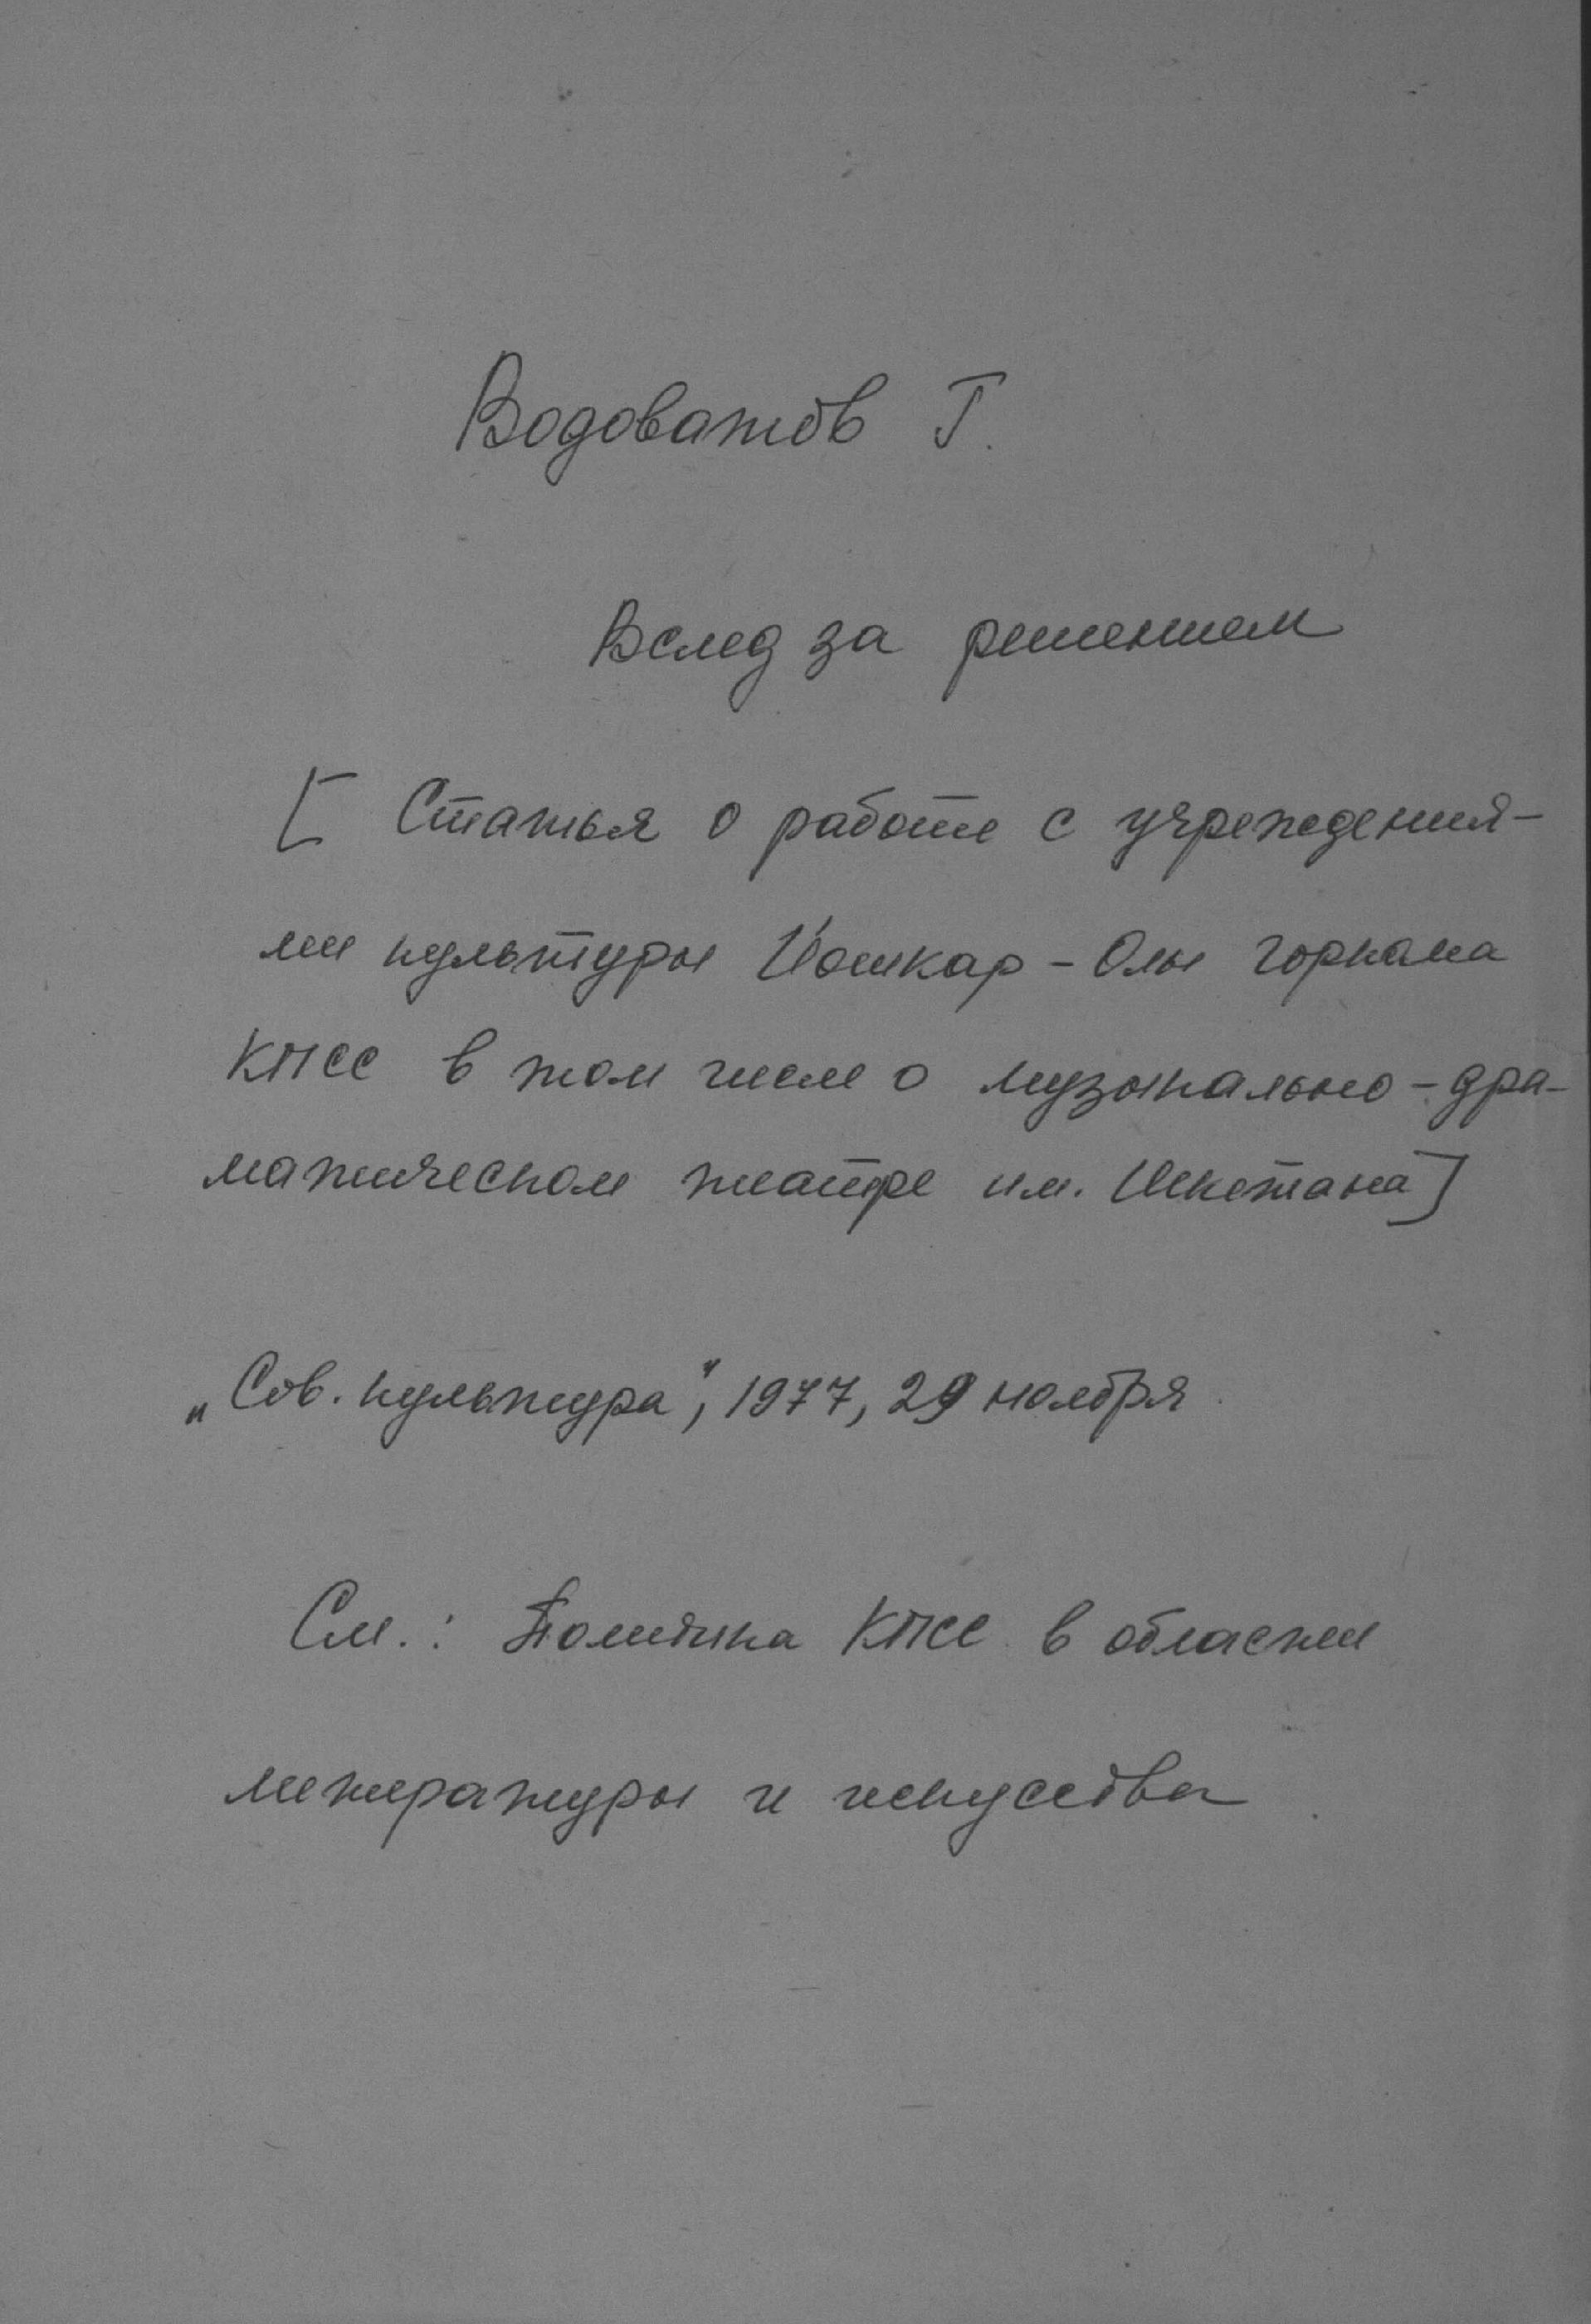 Водоватов Г.
Вслед за решением
[ Статья о работе с учреждения-
ми культуры Йошкар-Олы горкома
КПСС в том числе о музыкально-дра-
матическом театре им. Шкетана]
„Сов. культура", 1977, 29 ноября.
См.: Политика КПСС в области
литературы и искусства